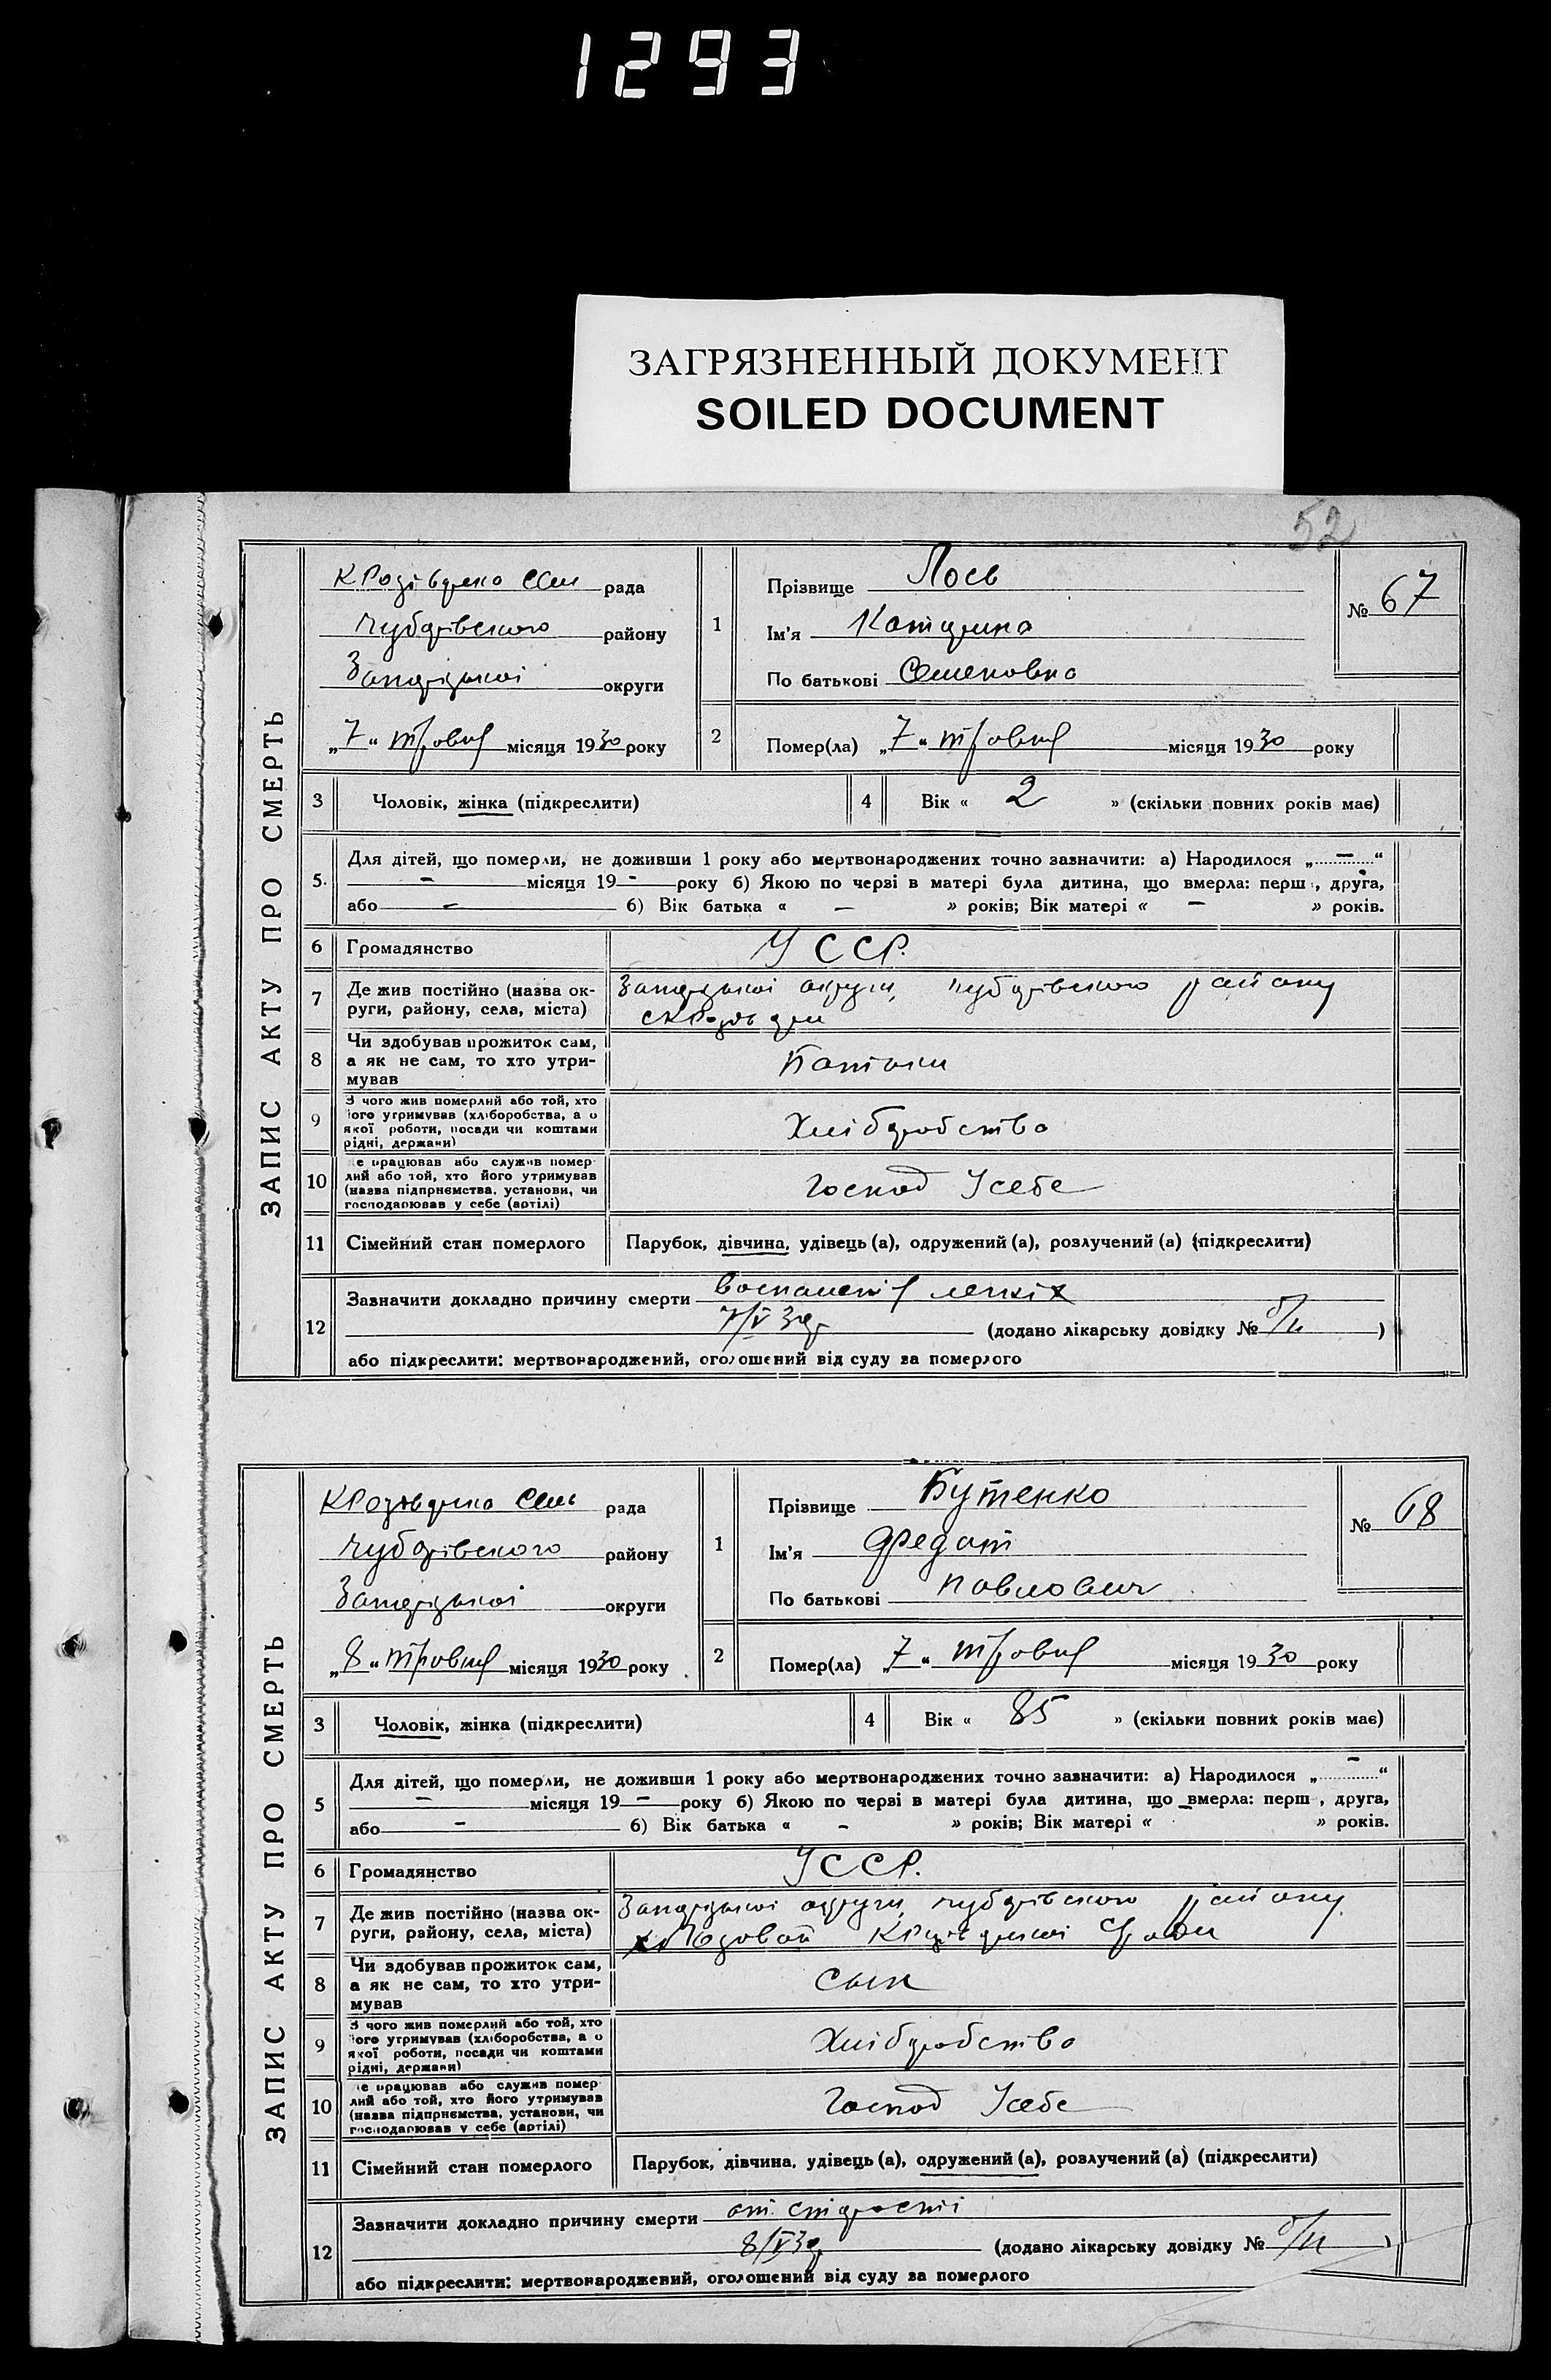 1293
ЗАГРЯЗНЕННЫЙ ДОКУМЕНТ
SOILED DOCUMENT
52
ЗАПИС АКТУ ПРО СМЕРТЬ
рада
Чубарівського району
Запорізької округи
„7“ травня місяця 1930 року
1
Прізвище Лось
Ім'я Катерина
По батькові Семеновна
№ 67
2
Помер(ла) „7“ травня місяця 1930 року
3 Чоловік, жінка (підкреслити)
4 Вік « 2 » (скільки повних років має)
5. Для дітей, що померли, не доживши 1 року або мертвонароджених точно зазначити: а) Народилося „ — “
— місяця 19 - року б) Якою по черзі в матері була дитина, що вмерла: перш , друга,
або — б) Вік батька « — » років; Вік матері « — » років.
6 Громадянство УССР.
7 Де жив постійно (назва ок-
руги, району, села, міста)
Запорізької округи, Чубарівського району
8 Чи здобував прожиток сам,
а як не сам, то хто утри-
мував
Батьки
9 З чого жив померлий або той, хто
його утримував (хліборобства, а о
якої роботи, посади чи коштами
рідні, держави)
Хліборобство
10 е працював або служив помер
лий або той, хто його утримував
(назва підприємства, установи, чи
господарював у себе (артілі)
Господ У себе
11 Сімейний стан померлого Парубок, дівчина, удівець (а), одружений (а), розлучений (а) (підкреслити)
12 Зазначити докладно причину смерти воспаленія легкіх
7/V 30р (додано лікарську довідку № б/н )
або підкреслити: мертвонароджений, оголошений від суду за померлого
ЗАПИС АКТУ ПРО СМЕРТЬ
рада
Чубарівського району
Запорізької округи
„8“ травня місяця 1930 року
1
Прізвище Бутенко
Ім'я Федот
По батькові Павлович
№ 68
2
Помер(ла) „7“ травня місяця 1930 року
3 Чоловік, жінка (підкреслити)
4 Вік « 85 » (скільки повних років має)
5 Для дітей, що померли, не доживши 1 року або мертвонароджених точно зазначити: а) Народилося „ — “
— місяця 19 — року б) Якою по черзі в матері була дитина, що вмерла: перш , друга,
або — б) Вік батька « - » років; Вік матері « » років.
6 Громадянство УССР.
7 Де жив постійно (назва ок-
руги, району, села, міста)
Запорізької округи, Чубарівського району
8 Чи здобував прожиток сам,
а як не сам, то хто утри-
мував
Сын
9 З чого жив померлий або той, хто
його утримував (хліборобства, а о
якої роботи, посади чи коштами
рідні, держави)
Хліборобство
10 е працював або служив помер
лий або той, хто його утримував
(назва підприємства, установи, чи
господарював у себе (артілі)
Господ У себе
11 Сімейний стан померлого Парубок, дівчина, удівець (а), одружений (а), розлучений (а) (підкреслити)
12 Зазначити докладно причину смерти от старості
8/V 30р (додано лікарську довідку № б/н )
або підкреслити: мертвонароджений, оголошений від суду за померлого